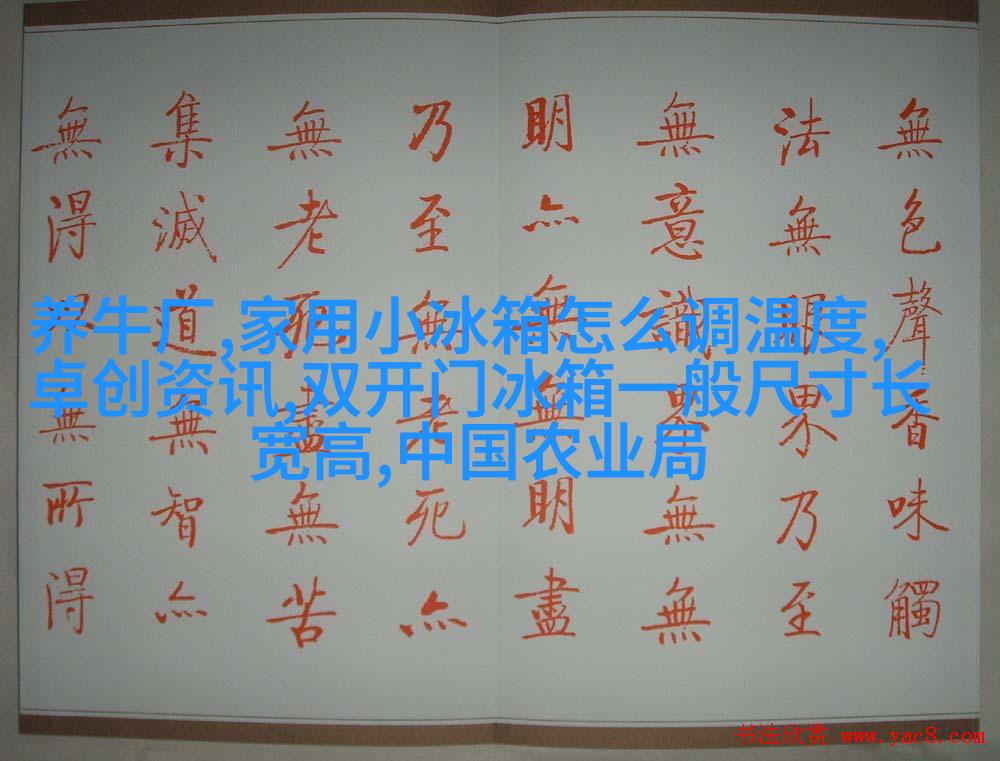 無色聲香味觸
法無眼界乃至
無意識界無無
明亦無無明盡
乃至無老死亦
無老死盡無苦
集滅道無智亦
無得無所得
养牛厂,家用小冰箱怎么调温度,
卓创资讯,双开门冰箱一般尺寸长
宽高,中国农业局
书法欣赏 www.yac8.com